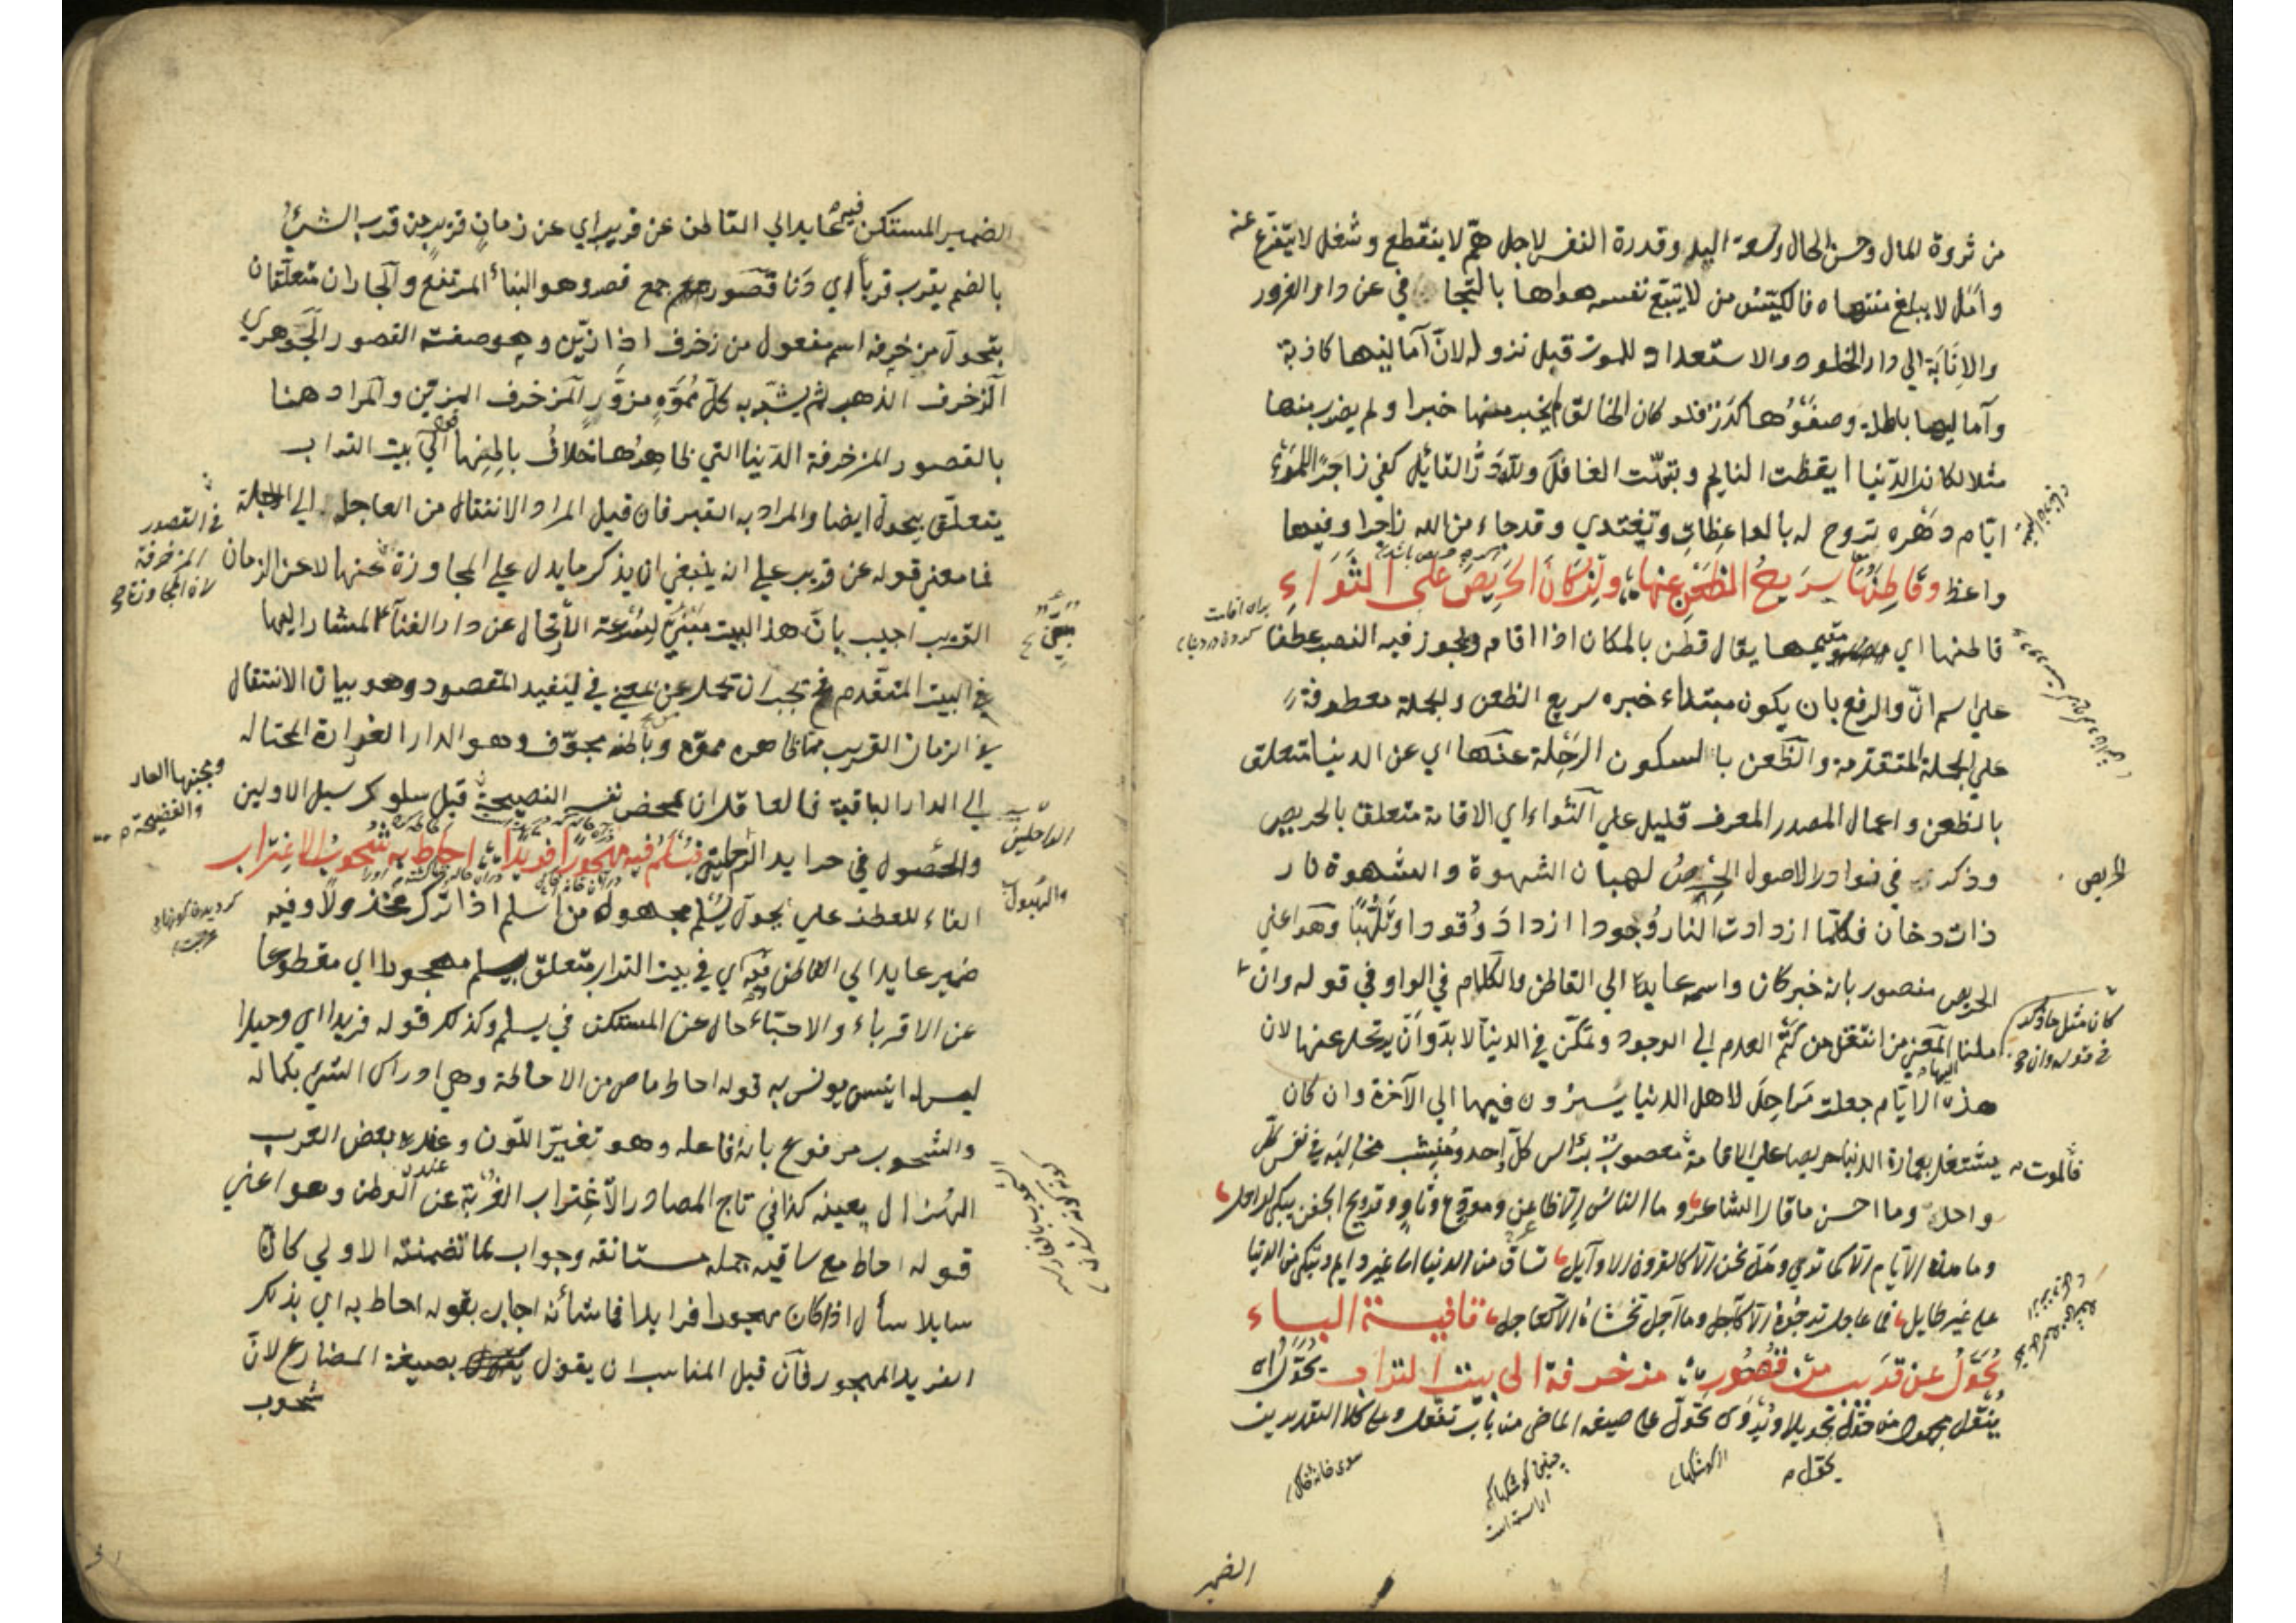 من ثروة المال وحسن الحال وسعة اليد وقدرة النفس لاجل همّ لا ينقطع وشغل لا يتفرغ عنه
وأمل لا يبلغ منتهاه فالكيّس من لا يتبع نفسه هواها بالتجافي عن دار الغرور
والانابة الي دار الخلود والاستعداد للموت قبل نزوله لان آمانيها كاذبة
وآمالها باطلة وصفوُها كدَر فلو كان الخالق لم يخبر عنها خبرا ولم يضرب منها
مثلا لكانت الدّنيا ايقظت النايم ونبّهت الغافل ولله دَرّ القائل كفي زاجرًا للمرء
ايّام دهره تروح له بالواعظات وتغتدي وقد جاء من الله زاجرا وفيها
واعظ وقاطِنُها سريعُ الظعن عنها وان كان الحريص على الثواء
قاطنها اي مقيمها يقال قطن بالمكان اذا اقام ويجوز فيه النصب عطفا
علي اسم انّ والرفع بان يكون مبتداء خبره سريع الظعن والجملة معطوفة
علي الجملة المتقدمة والظعن بالسكون الرحلة عنها اي عن الدنيا متعلق
بالظعن واعمال المصدر المعرف قليل علي الثواء اي الاقامة متعلق بالحريص
وذكر في نوادر الاصول الحرص لهبان الشهوة والشهوة نار
ذات دخان فكلّما ازدادت النار وُجودا ازداد وُقودا وتلهّبًا وهو اعني
الحريص منصوب بانه خبر كان واسمه عايد الي القاطن والكلام في الواو في قوله وان
ملنا المعني من انتقل من كتم العدم الي الوجود وتمكّن في الدنيا لا بدّ وان يرتحل عنها لان
هذه الايّام جعلت مَراحِل لاهل الدنيا يسيرون فيها الي الآخرة وان كان
يشتغل بعمارة الدنيا حريصا علي الاقامة معصوب براس كلّ احد ومُنشِب مخاليبه في نفس كلّ
واحد وما احسن ما قال الشاعر وما الناس الا ظاعن وموقع وثاو وقريح الجفن يبكي لراحل
وما هذه الايّام الا كما تري وهل نحن الا كالقرون الاوآيل نساق من الدنيا الي غير دايم ونبكي من الدنيا
علي غير طايل فما عاجل ترجوه الا كآجل وما آجل تخشاه الا كعاجل قافية الباء
تُحَوَّلُ عن قريب من قصُور مزخرفة الي بيت التراب تُحوَّل اي
يُنقل مجهول من حوّل تحويلا ويُروي تحوّل علي صيغة الماضي من باب تفعّل وعلي كلا التقديرين
الحريص
كان مثل ما ذكر
في قوله وان
فالموت
سوي خانة خاك
چنين كوشكها كه
اراسته است
از كوشكها
الضمير
الضمير المستكن فيه عايد الي القاطن عن قريب اي عن زمان قريب من قرب الشيء
بالضم يقرب قرباً اي دَنا قصور جمع قصر وهو البناء المرتفع والجاران متعلقان
بتحول مزخرفة اسم مفعول من زخرف اذا زيّن وهو صفة القصور الجوهري
الزخرف الذهب ثم يشبّه به كلّ مُمَوّهٍ مزوَّرٍ المزخرف المزيّن والمراد هنا
بالقصور المزخرفة الدنيا التي ظاهرُها خلافُ باطِنِها الي بيت التراب
يتعلّق بتحول ايضا والمراد به القبر فان قيل المراد الانتقال من العاجلة الي الاجلة
فما معني قوله عن قريب علي انه ينبغي ان يذكر ما يدل علي المجاوزة عنها لا عن الزمان
القريب اجيب بانّ هذا البيت مَبْنيّ لسرعة الارتحال عن دار الفناء المشار اليها
في البيت المتقدم فح يجب ان تحمل عن بمعني في ليفيد المقصود وهو بيان الانتقال
في الزمان القريب مما ظاهره مموّه وباطنه مجوّف وهو الدار الغرارة المحتالة
الي الدار الباقية فالعاقل ان يمحض نفسه النصيحة قبل سلوك سبل الاولين
والحُصول في حدايد الرحلين فيُسْلَمُ فيه مهجُورًا فريدًا احاط به شُحوبُ الاغتراب
الفاء للعطف علي تحول يُسْلَم مجهول من اسلم اذا ترك مخذولا وفيه
ضمير عايد الي القاطن فيه اي في بيت التراب متعلق بيسلم مهجورا اي مقطوعا
عن الاقرباء والاحبّاء حال عن المستكن في يسلم وكذلك قوله فريدا اي وحيدا
ليس له انيس يونس به قوله احاط ماض من الاحاطة وهي ادراك الشيء بكماله
والشحوب مرفوع بانه فاعله وهو تغيّر اللّون وعند بعض العرب
الهُزال بعينه كذا في تاج المصادر الاغتراب الغُربَة عن الوطن وهو اعني
قوله احاط مع ساقيه جملة مستانفة وجواب لما تضمنته الاولي كان
سايلا سأل اذا كان مهجورا فريدا فما شأنه اجاب بقوله احاط به اي بذلك
الفريد المهجور فان قيل المناسب ان يقول بصيغة المضارع لان
شحوب
في القصور
المزخرفة
ويجنبها العار
والفضيحة